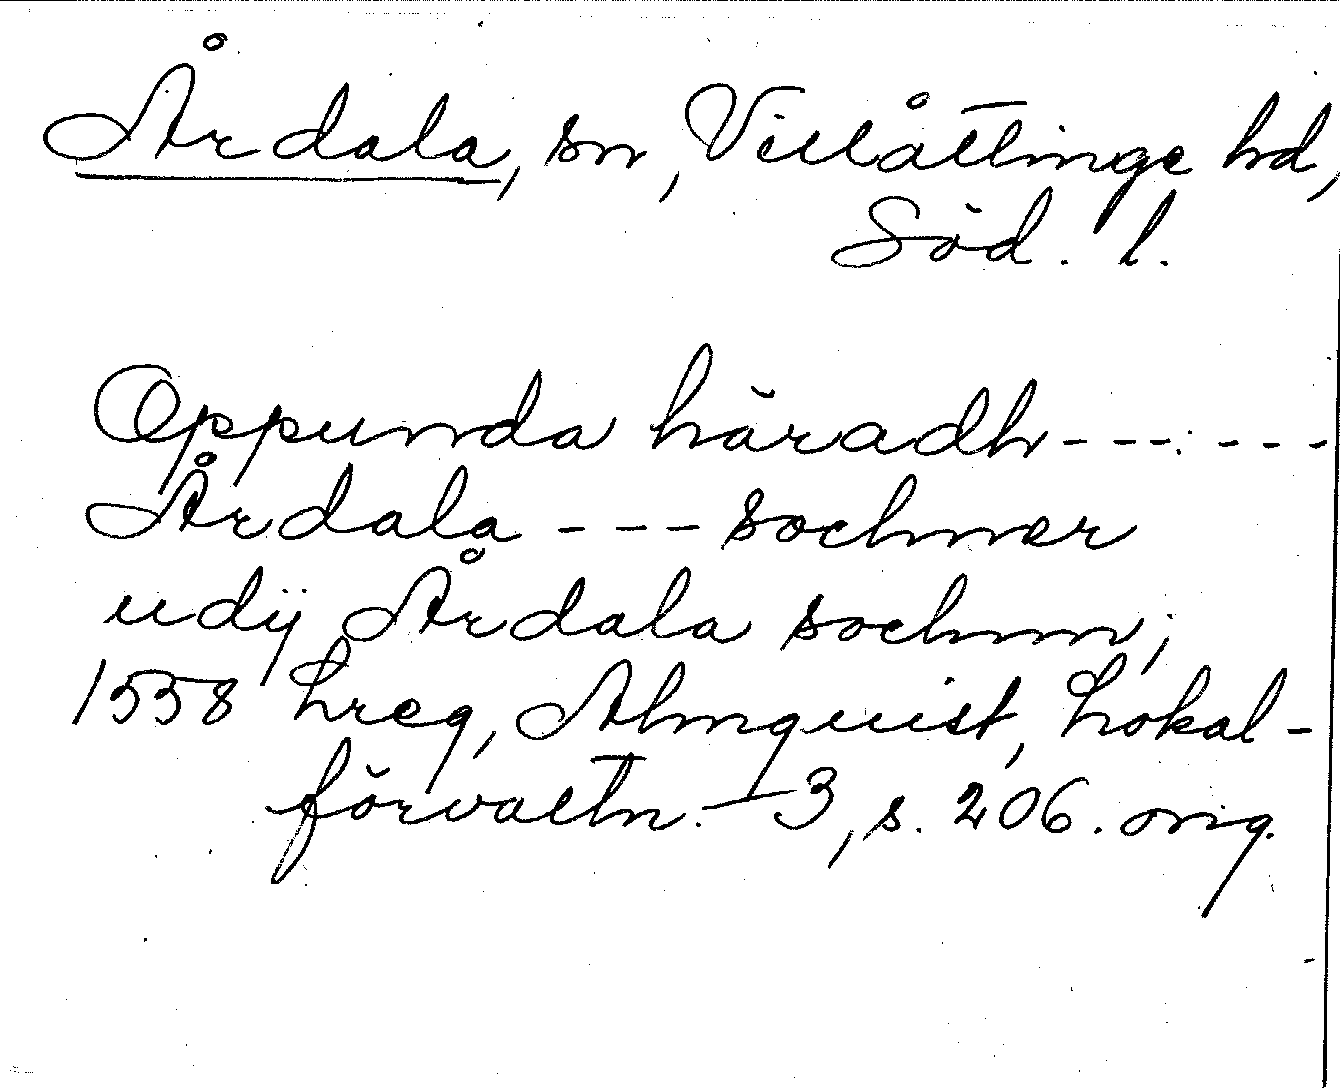 Årdala, sn, Villåttinge hd,
Söd. l.
Oppunda häradh - - - - - -
Årdala - - - sochner
udij Årdala sochnn;
1558 Lreg, Almquist, Lokal-
förvaltn. 3, s. 206. orig.